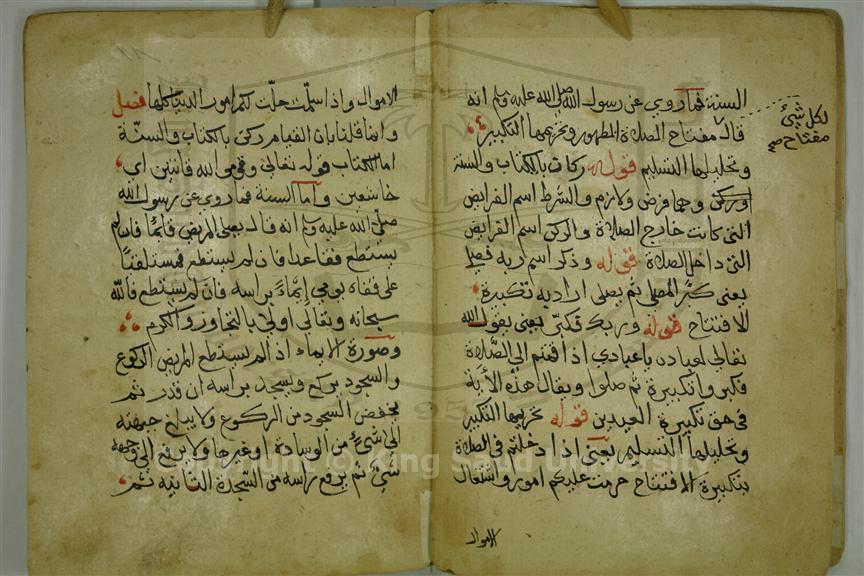 السنة فما روي عن رسول الله صلى الله عليه وسلم انه
قال مفتاح الصلاة الطهور وتحريمها التكبير
وتحليلها التسليم قوله ركات بالكتاب والسنة
او ركن وهما فرض ولازم والشرط اسم الفرايض
التى كانت خارج الصلاة والركن اسم الفرايض
التى داخل الصلاة قوله وذكر اسم ربه فصلى
يعنى كبر المصلى ثم يصلى اراد به تكبيرة
الافتتاح قوله وربك فكبر يعنى يقول الله
تعالى لعباده يا عبادي اذا قمتم الى الصلاة
فكبروا تكبيرة ثم صلوا ويقال هذه الاية
فى حق تكبيرة العيدين قوله تحريمها التكبير
وتحليلها التسليم يعنى اذا دخلتم فى الصلاة
بتكبيرة الافتتاح حرمت عليكم امور واشتغال
الاموال
لكل شئ
مفتاح صح
الاموال واذا سلمت حلت لكم امور الدنيا كلها فصل
وانما قلنا بان القيام ركن بالكتاب والسنة
اما الكتاب قوله تعالى وقوموا لله قانتين اي
خاشعين واما السنة فما روي عن رسول الله
صلى الله عليه وسلم انه قال يصلى المريض قائما فان لم
يستطع فقاعدا فان لم يستطع فمستلقيا
على قفاه يومي إيماءً براسه فان لم يستطع فالله
سبحانه وتعالى اولى بالتجاوز والكرم
وصورة الايماء اذا لم يستطع المريض الركوع
والسجود يركع ويسجد براسه ان قدر ثم
يخفض السجود من الركوع ولا يبلغ جبهته
الى شئ من الوسادة او غيرها ولا يرفع الى وجهه
شئ ثم يرفع راسه من السجدة الثانيه ثم
Copyright © King Saud University